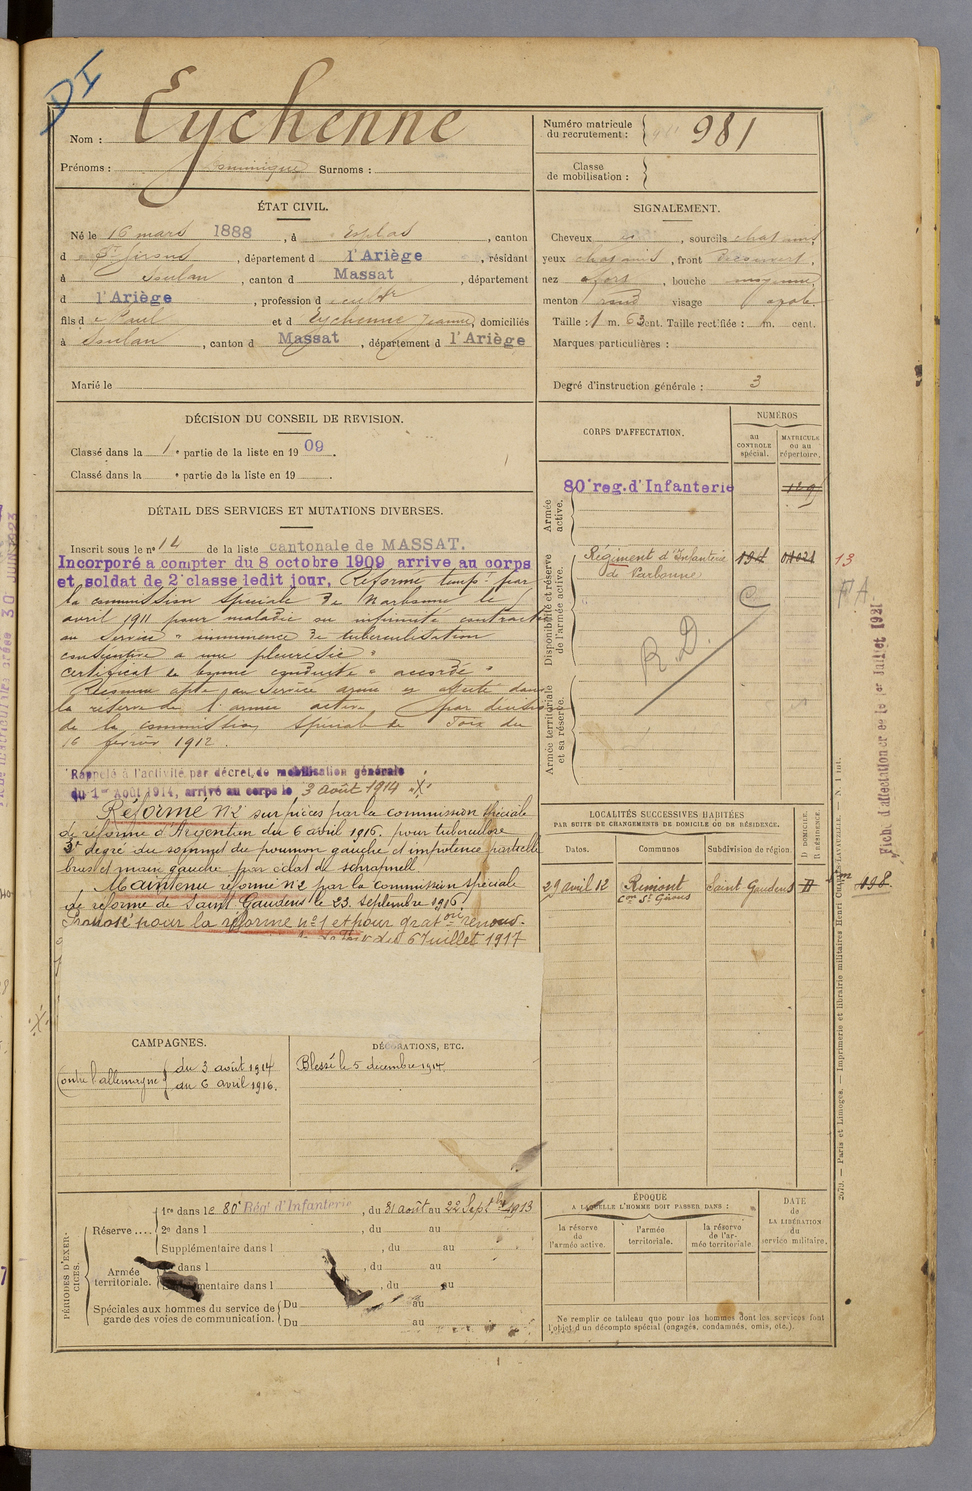 DI
Nom : Eychenne
Prénoms : Dominique Surnoms :
Numéro matricule du recrutement : 981
Classe de mobilisation :
ÉTAT CIVIL.
Né le 16 mars 1888, à Esplas, canton
d St Girons, département d l'Ariège, résidant
à Soulan, canton d Massat, département
d l'Ariège, profession d cultr
fils d e Paul et d Eychenne Jeanne, domiciliés
à Soulan, canton d Massat, département d l'Ariège
Marié le
SIGNALEMENT.
Cheveux, sourcils chatains
yeux chatains, front découvert,
nez fort, bouche moyenne,
menton rond visage ovale.
Taille : 1 m. 63 cent. Taille rectifiée : m. cent.
Marques particulières :
Degré d'instruction générale : 3
DÉCISION DU CONSEIL DE REVISION.
Classé dans la 1e partie de la liste en 1909.
Classé dans la e partie de la liste en 19 .
DÉTAIL DES SERVICES ET MUTATIONS DIVERSES.
Inscrit sous le n° 14 de la liste cantonale de MASSAT.
Incorporé à compter du 8 octobre 1909 arrive au corps
et soldat de 2e classe ledit jour, Réformé tempt par
la commission spéciale de Narbonne le
avril 1911 pour maladie ou infirmité contractée
au service " imminence de tuberculisation
consécutive à une pleurésie "
certificat de bonne conduite " accordé "
Reconnu apte au service armé et affecté dans
la réserve de l'armée active, par décision
de la commission spéciale de Foix du
16 février 1912.
Rappelé à l'activité par décret de mobilisation générale
du 1er Août 1914, arrivé au corps le 3 août 1914 "X"
Réformé N°2 sur pièces par la commission spéciale
de réforme d'Argentan du 6 avril 1916. pour tuberculose
3e degré du sommet du poumon gauche et impotence partielle
bras et main gauche par éclat de schrapnell.
Maintenu réformé n°2 par la Commission spéciale
de réforme de Saint Gaudens le 23 septembre 1916.
Proposé pour la réforme n°1 et pour graton renouv-
du 6 Juillet 1917
CORPS D'AFFECTATION.
NUMÉROS
au CONTROLE spécial.
MATRICULE ou au répertoire.
Armée active.
80e reg. d'Infanterie
Disponibilité et réserve de l'armée active.
Régiment d'Infanterie de Narbonne
13
R.D
Armée territoriale et sa réserve.
Fiche d'affectation créée le 1er Juillet 1921
LOCALITÉS SUCCESSIVES HABITÉES
PAR SUITE DE CHANGEMENTS DE DOMICILE OU DE RÉSIDENCE.
Dates. Communes Subdivision de région. D DOMICILE. R RÉSIDENCE
29 avril 12 Rimont con St Girons Saint Gaudens D 198
CAMPAGNES.
Contre l'allemagne du 3 août 1914
du 6 avril 1916.
DÉCORATIONS, ETC.
Blessé le 5 décembre 1914
PÉRIODES D'EXERCICES.
Réserve .... 1re dans le 80e Régt d'Infanterie, du 31 août au 22 Septbre 1913
2e dans l , du au
Supplémentaire dans l , du au
Armée territoriale. dans l , du au
Supplémentaire dans l , du au
Spéciales aux hommes du service de garde des voies de communication. Du au
Du au
ÉPOQUE
A LAQUELLE L'HOMME DOIT PASSER DANS :
la réserve de l'armée active.
l'armée territoriale.
la réserve de l'armée territoriale.
DATE DE LA LIBÉRATION du service militaire.
Ne remplir ce tableau que pour les hommes dont les services font
l'objet d'un décompte spécial (engagés, condamnés, omis, etc.).
2079. — Paris et Limoges. — Imprimerie et librairie militaires Henri CHARLES-LAVAUZELLE. — N. 1 int.